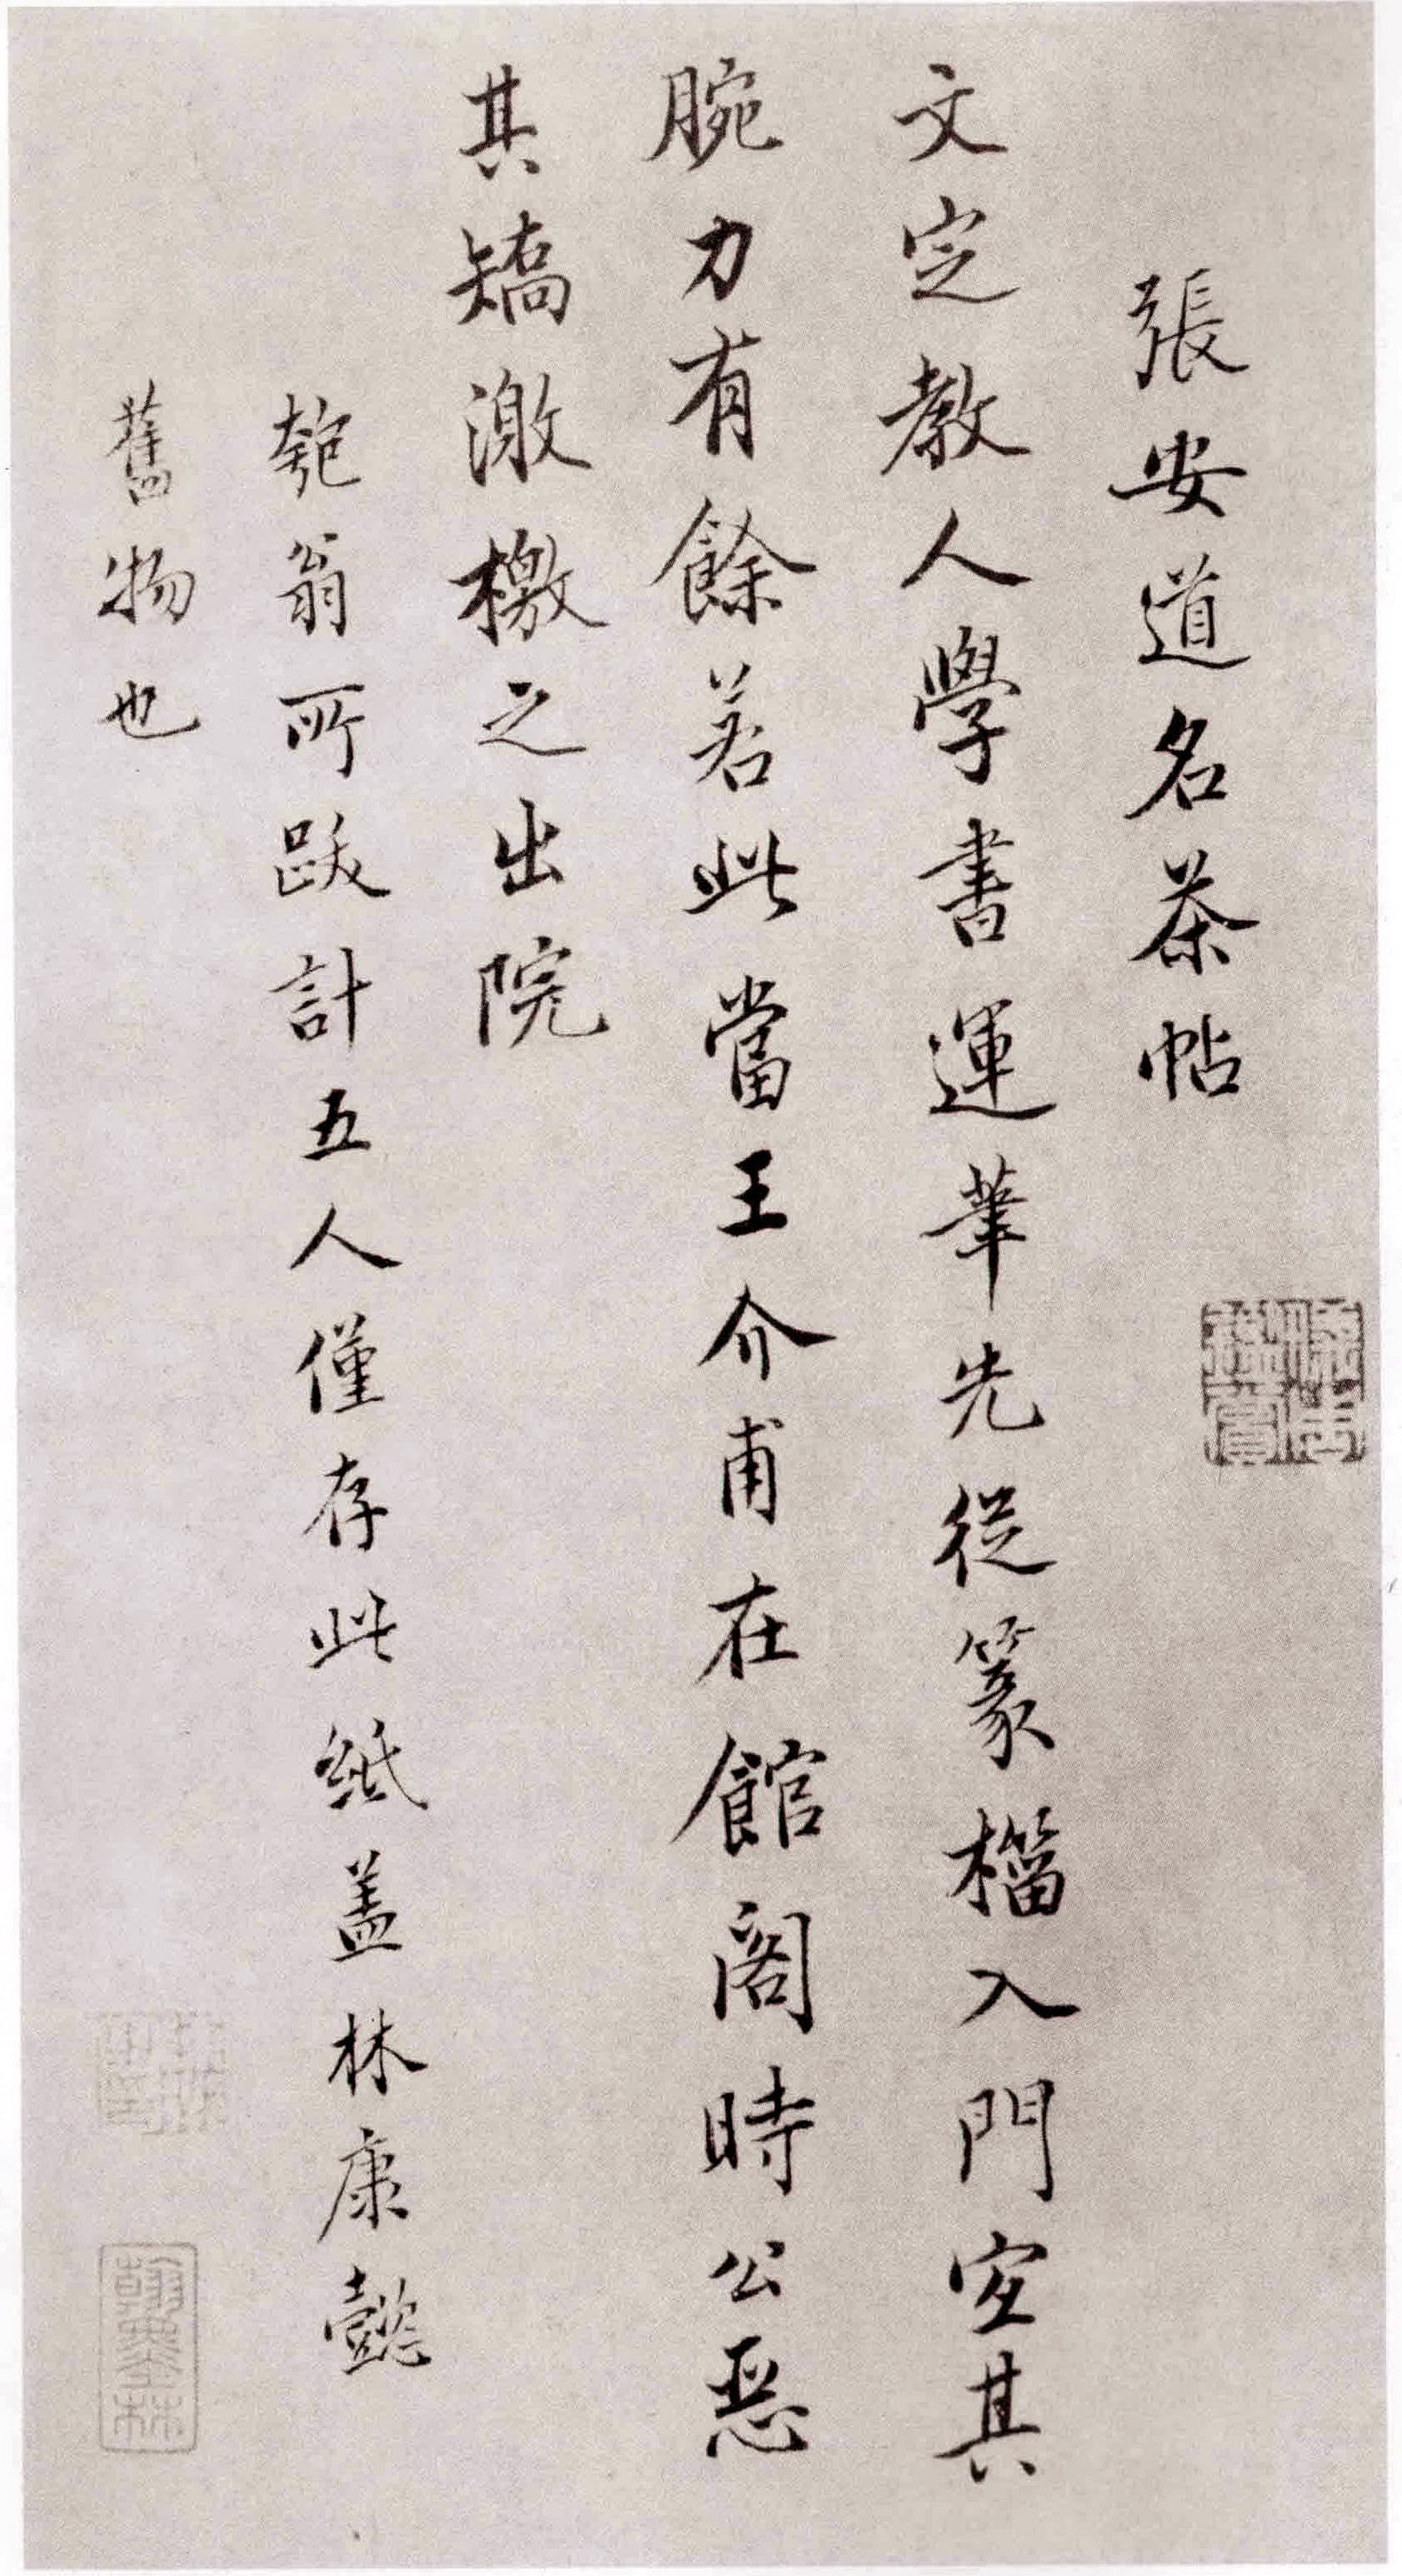 張安道名茶帖
文定教人學書運筆先從篆籀入門宜其
腕力有餘若此當王介甫在館閣時公惡
其矯激檄之出院
匏翁所跋計五人僅存此紙盖林康懿
舊物也
翰墨林